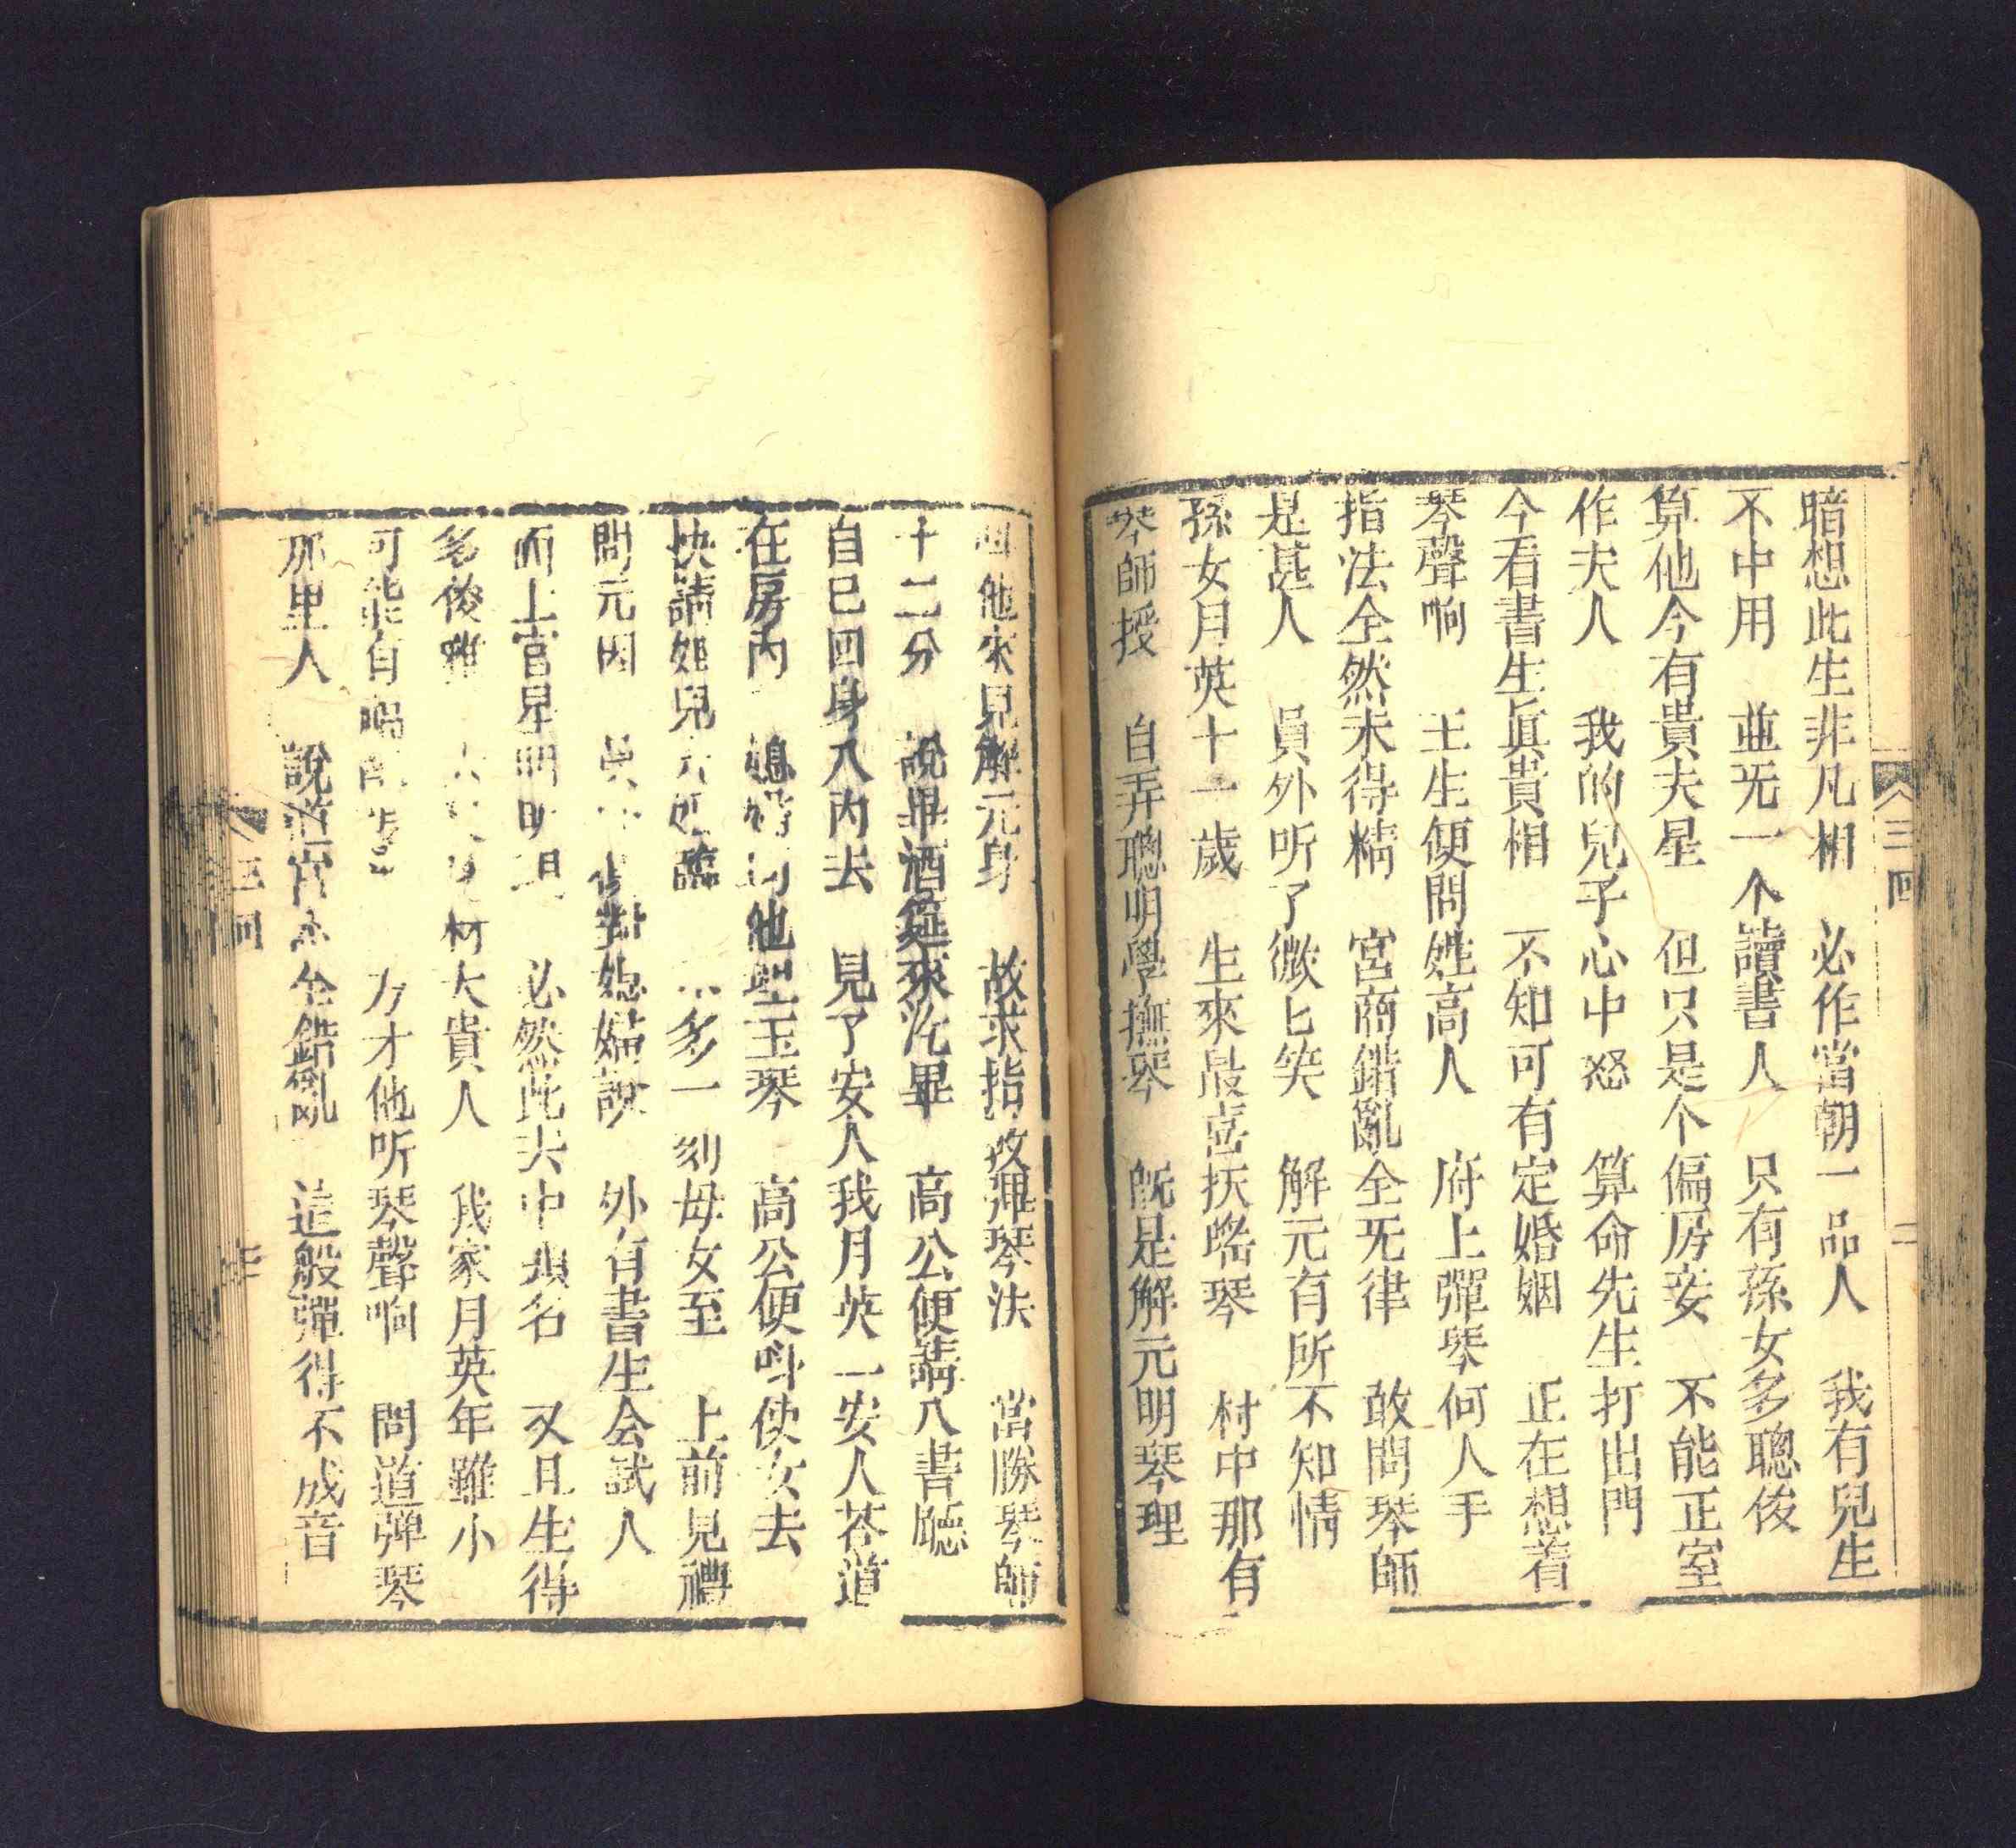 三回
二
暗想此生非凡相　必作當朝一品人　我有兒生
不中用　並无一个讀書人　只有孫女多聰俊
算他今有貴夫星　但只是个偏房妾　不能正室
作夫人　我的兒子心中怒　算命先生打出門
今看書生眞貴相　不知可有定婚姻　正在想着
琴聲响　王生便問姓高人　府上彈琴何人手
指法全然未得精　宮商錯亂全无律　敢問琴師
是甚人　員外听了微匕笑　解元有所不知情
孫女月英十一歲　生來最喜抚瑤琴　村中那有
琴師授　自弄聰明學撫琴　旣是解元明琴理
他來見解元身　故求指教彈琴法　當勝琴師
十二分　說畢酒筵來汔畢　高公便請八書廳
自已回身入内去　見了安人我月英　一安人荅道
在房内　媳婦同他理玉琴　高公便呌使女去
快請姐兒　臨　多一刻母女至　上前見禮
問元因　對媳婦說　外有書生会試人
而上官星明　必然此夫中頭名　又且生得
多俊雅　材大貴人　我家月英年雖小
可能有　方才他听琴聲响　問道彈琴
那里人　說道宮商全錯亂　這般彈得不成音
三回